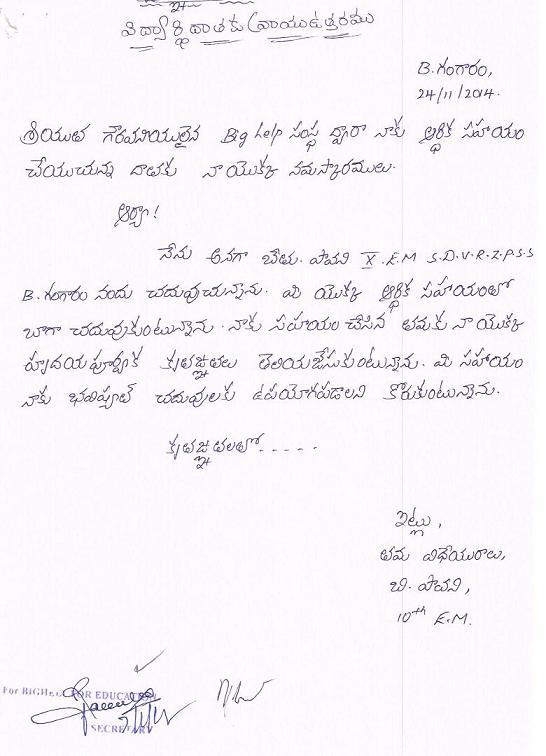 విద్యార్థి దాతకు వ్రాయు ఉత్తరము
B. గంగారం,
24/11/2014.
శ్రీయుత గౌరవనీయులైన Big help సంస్థ ద్వారా నాకు ఆర్థిక సహాయం
చేయుచున్న దాతకు నా యొక్క నమస్కారములు.
ఆర్యా!
నేను అనగా బేతు. పావని X. E.M S.D.V.R.Z.P.S.S
B. గంగారం నందు చదువుచున్నాను. మి యొక్క ఆర్థిక సహాయంలో
బాగా చదువుకుంటున్నాను. నాకు సహాయం చేసిన తమకు నా యొక్క
హృదయపూర్వక కృతజ్ఞతలు తెలియజేసుకుంటున్నాను. మి సహాయం
నాకు భవిష్యత్ చదువులకు ఉపయోగపడాలని కోరుకుంటున్నాను.
కృతజ్ఞతలతో.....
ఇట్లు,
తమ విధేయురాలు,
బి. పావని,
10th E.M.
For BIGHELP FOR EDUCATION
SECRETARY